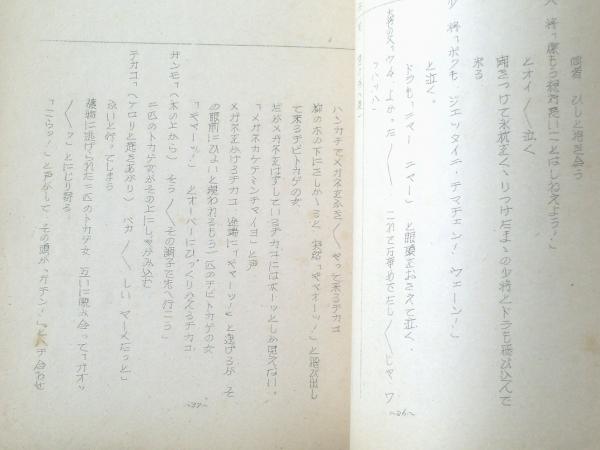 両者 ひしと抱き合う
大将「僕もう絶対悪いことはしねえよう!」
とオイ〱泣く
聞きつけて氷枕をくゝりつけたまゝの少将とドラも飛び込んで
来る
少将「ボクも ジェッタイニ・チマチェン! ウェーン!」
と泣く。
ドラも「ニャー ニャー」と眼頭をおさえて泣く。
よかった〱 これで万事めでたし〱じゃ ワ
ッハッハ」
~26~
ハンカチでメガネをふき〱やって来るチカコ
柳の木の下にさしかゝると 突然「ギャオーッ!」と飛び出し
て来るチビトカゲの女
だがメガネをはずしているチカコにはボーッとしか見えない。
「メガネカケテミンチマイヨ」と声
メガネをかけるチカコ 途端に「キャーッ!」と逃げるが そ
の眼前にひょいと現われるもう一匹のチビトカゲの女
「ギャーッ!」とオーバーにひっくりかえるチカコ
ガンモ「(木の上から) そう〱その調子で次へ行こう」
二匹のトカゲ女がその上にしゃがみ込む
チカコ「(ケロリと起きあがり) バカ〱しい マーメだっと」
ぷいと行ってしまう
獲物に逃げられた二匹のトカゲ女 互いに睨み合って「ガオッ
〱ッ」とにじり寄る
「こらッ!」と声がして、その頭が「ガチン!」とハチ合わせ
~27~